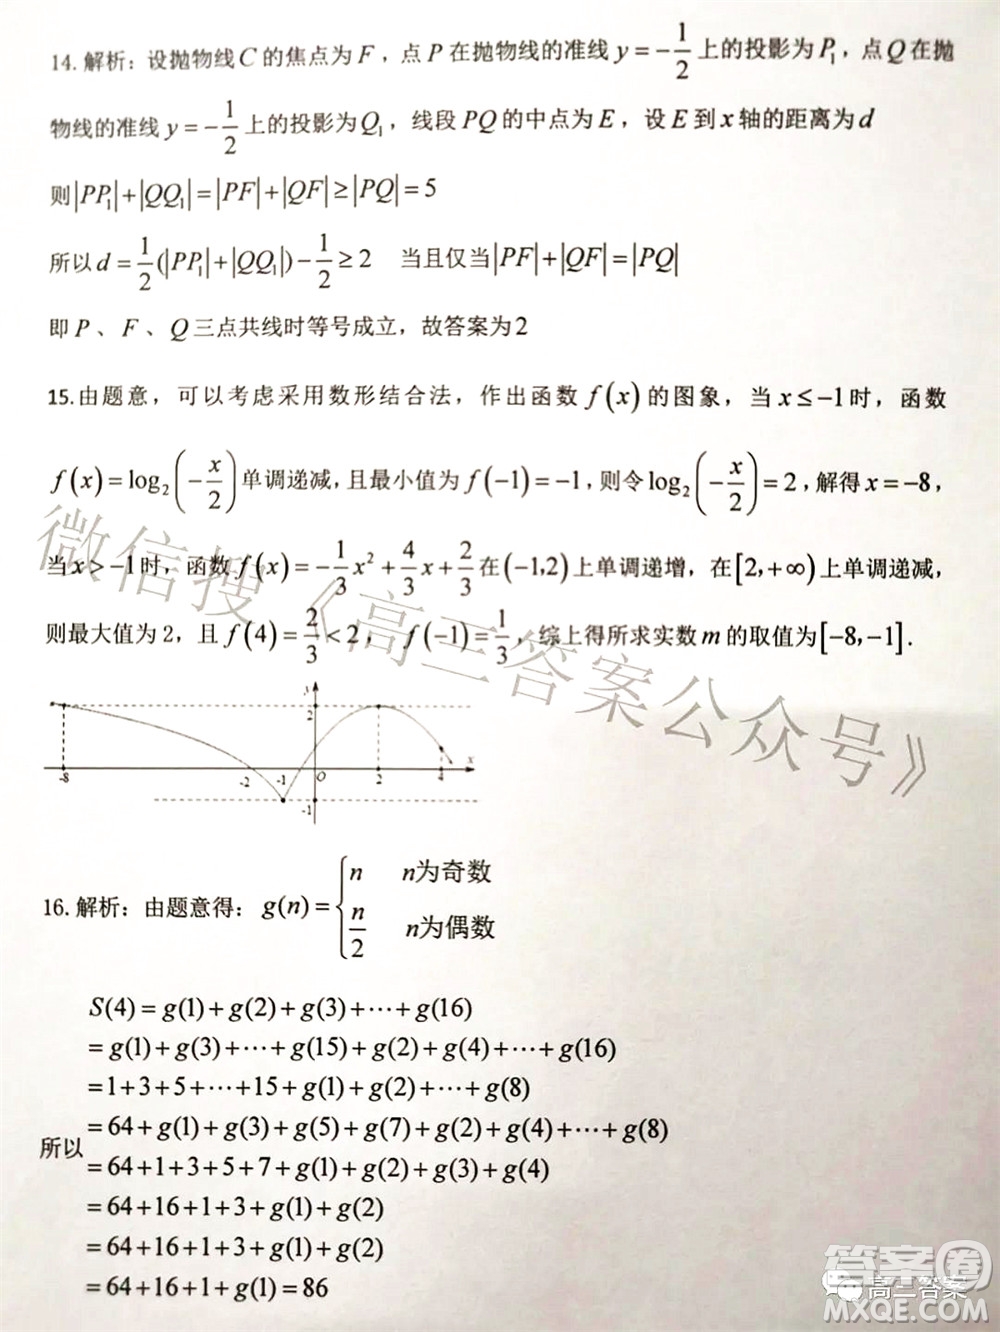 14. 解析：设抛物线C的焦点为F，点P在抛物线的准线y=-1/2上的投影为P₁，点Q在抛
物线的准线y=-1/2上的投影为Q₁，线段PQ的中点为E，设E到x轴的距离为d
则|PP₁|+|QQ₁|=|PF|+|QF|≥|PQ|=5
所以d=1/2(|PP₁|+|QQ₁|)-1/2≥2 当且仅当|PF|+|QF|=|PQ|
即P、F、Q三点共线时等号成立，故答案为2
15.由题意，可以考虑采用数形结合法，作出函数f(x)的图象，当x≤-1时，函数
f(x)=log₂(-x/2)单调递减，且最小值为f(-1)=-1，则令log₂(-x/2)=2，解得x=-8，
当x>-1时，函数f(x)=-1/3x²+4/3x+2/3在(-1,2)上单调递增，在[2,+∞)上单调递减，
则最大值为2，且f(4)=2/3<2，f(-1)=1/3，综上得所求实数m的取值为[-8,-1].
y
2
-8 -2 -1 O 2 4 x
-1
16. 解析：由题意得：g(n)={n n为奇数
n/2 n为偶数
S(4)=g(1)+g(2)+g(3)+⋯+g(16)
=g(1)+g(3)+⋯+g(15)+g(2)+g(4)+⋯+g(16)
=1+3+5+⋯+15+g(1)+g(2)+⋯+g(8)
=64+g(1)+g(3)+g(5)+g(7)+g(2)+g(4)+⋯+g(8)
所以
=64+1+3+5+7+g(1)+g(2)+g(3)+g(4)
=64+16+1+3+g(1)+g(2)
=64+16+1+3+g(1)+g(2)
=64+16+1+g(1)=86
微信搜《高三答案公众号》
答案圈
高三答案
MXQE.COM